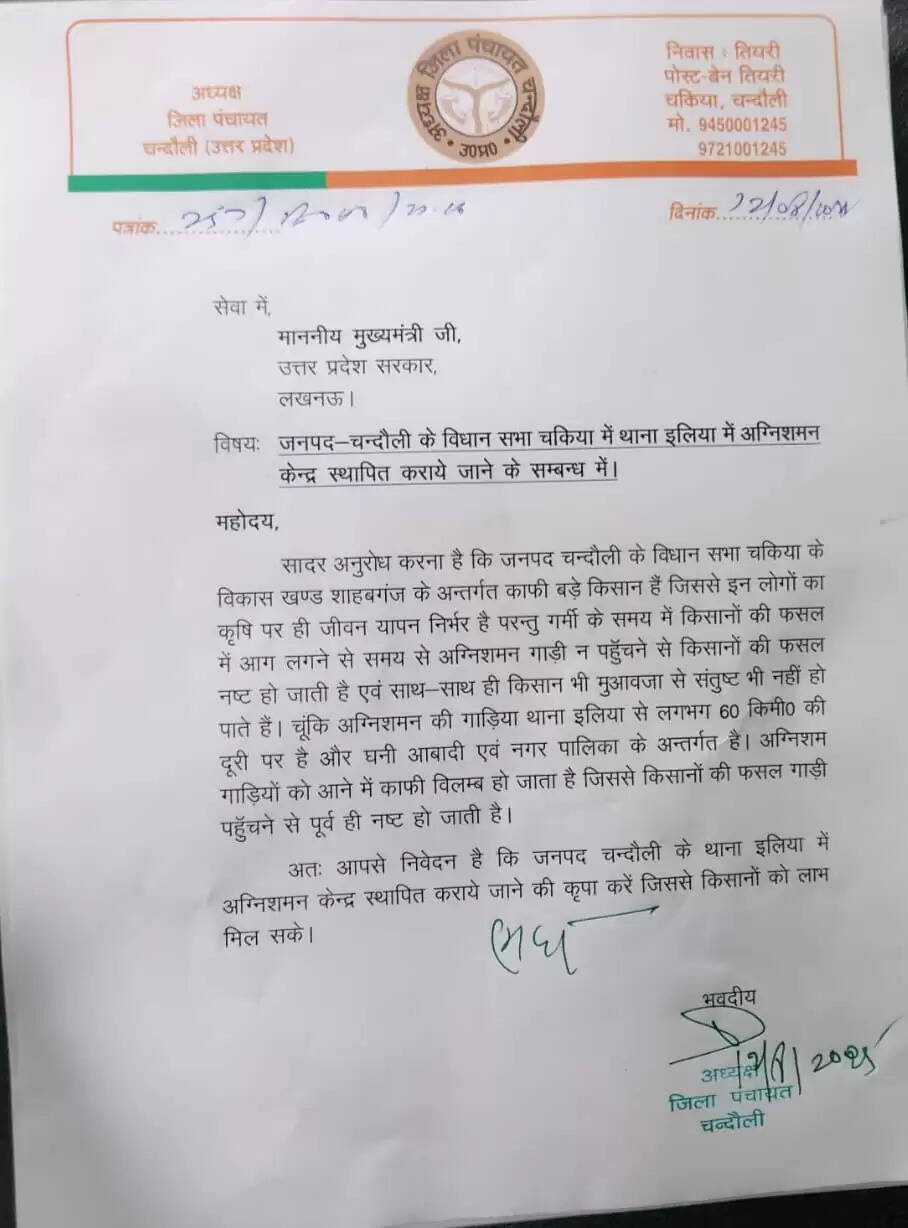 अध्यक्ष
जिला पंचायत
चन्दौली (उत्तर प्रदेश)
अध्यक्ष जिला पंचायत चन्दौली
उ०प्र०
निवास : तियरी
पोस्ट-बेन तियरी
चकिया, चन्दौली
मो. 9450001245
9721001245
पत्रांक
दिनांक
सेवा में,
माननीय मुख्यमंत्री जी,
उत्तर प्रदेश सरकार,
लखनऊ।
विषयः जनपद–चन्दौली के विधान सभा चकिया में थाना इलिया में अग्निशमन
केन्द्र स्थापित कराये जाने के सम्बन्ध में।
महोदय,
सादर अनुरोध करना है कि जनपद चन्दौली के विधान सभा चकिया के
विकास खण्ड शाहबगंज के अन्तर्गत काफी बड़े किसान हैं जिससे इन लोगों का
कृषि पर ही जीवन यापन निर्भर है परन्तु गर्मी के समय में किसानों की फसल
में आग लगने से समय से अग्निशमन गाड़ी न पहुँचने से किसानों की फसल
नष्ट हो जाती है एवं साथ–साथ ही किसान भी मुआवजा से संतुष्ट भी नहीं हो
पाते हैं। चूंकि अग्निशमन की गाड़िया थाना इलिया से लगभग 60 किमी0 की
दूरी पर है और घनी आबादी एवं नगर पालिका के अन्तर्गत है। अग्निशम
गाड़ियों को आने में काफी विलम्ब हो जाता है जिससे किसानों की फसल गाड़ी
पहुँचने से पूर्व ही नष्ट हो जाती है।
अतः आपसे निवेदन है कि जनपद चन्दौली के थाना इलिया में
अग्निशमन केन्द्र स्थापित कराये जाने की कृपा करें जिससे किसानों को लाभ
मिल सके।
भवदीय
अध्यक्ष
जिला पंचायत
चन्दौली